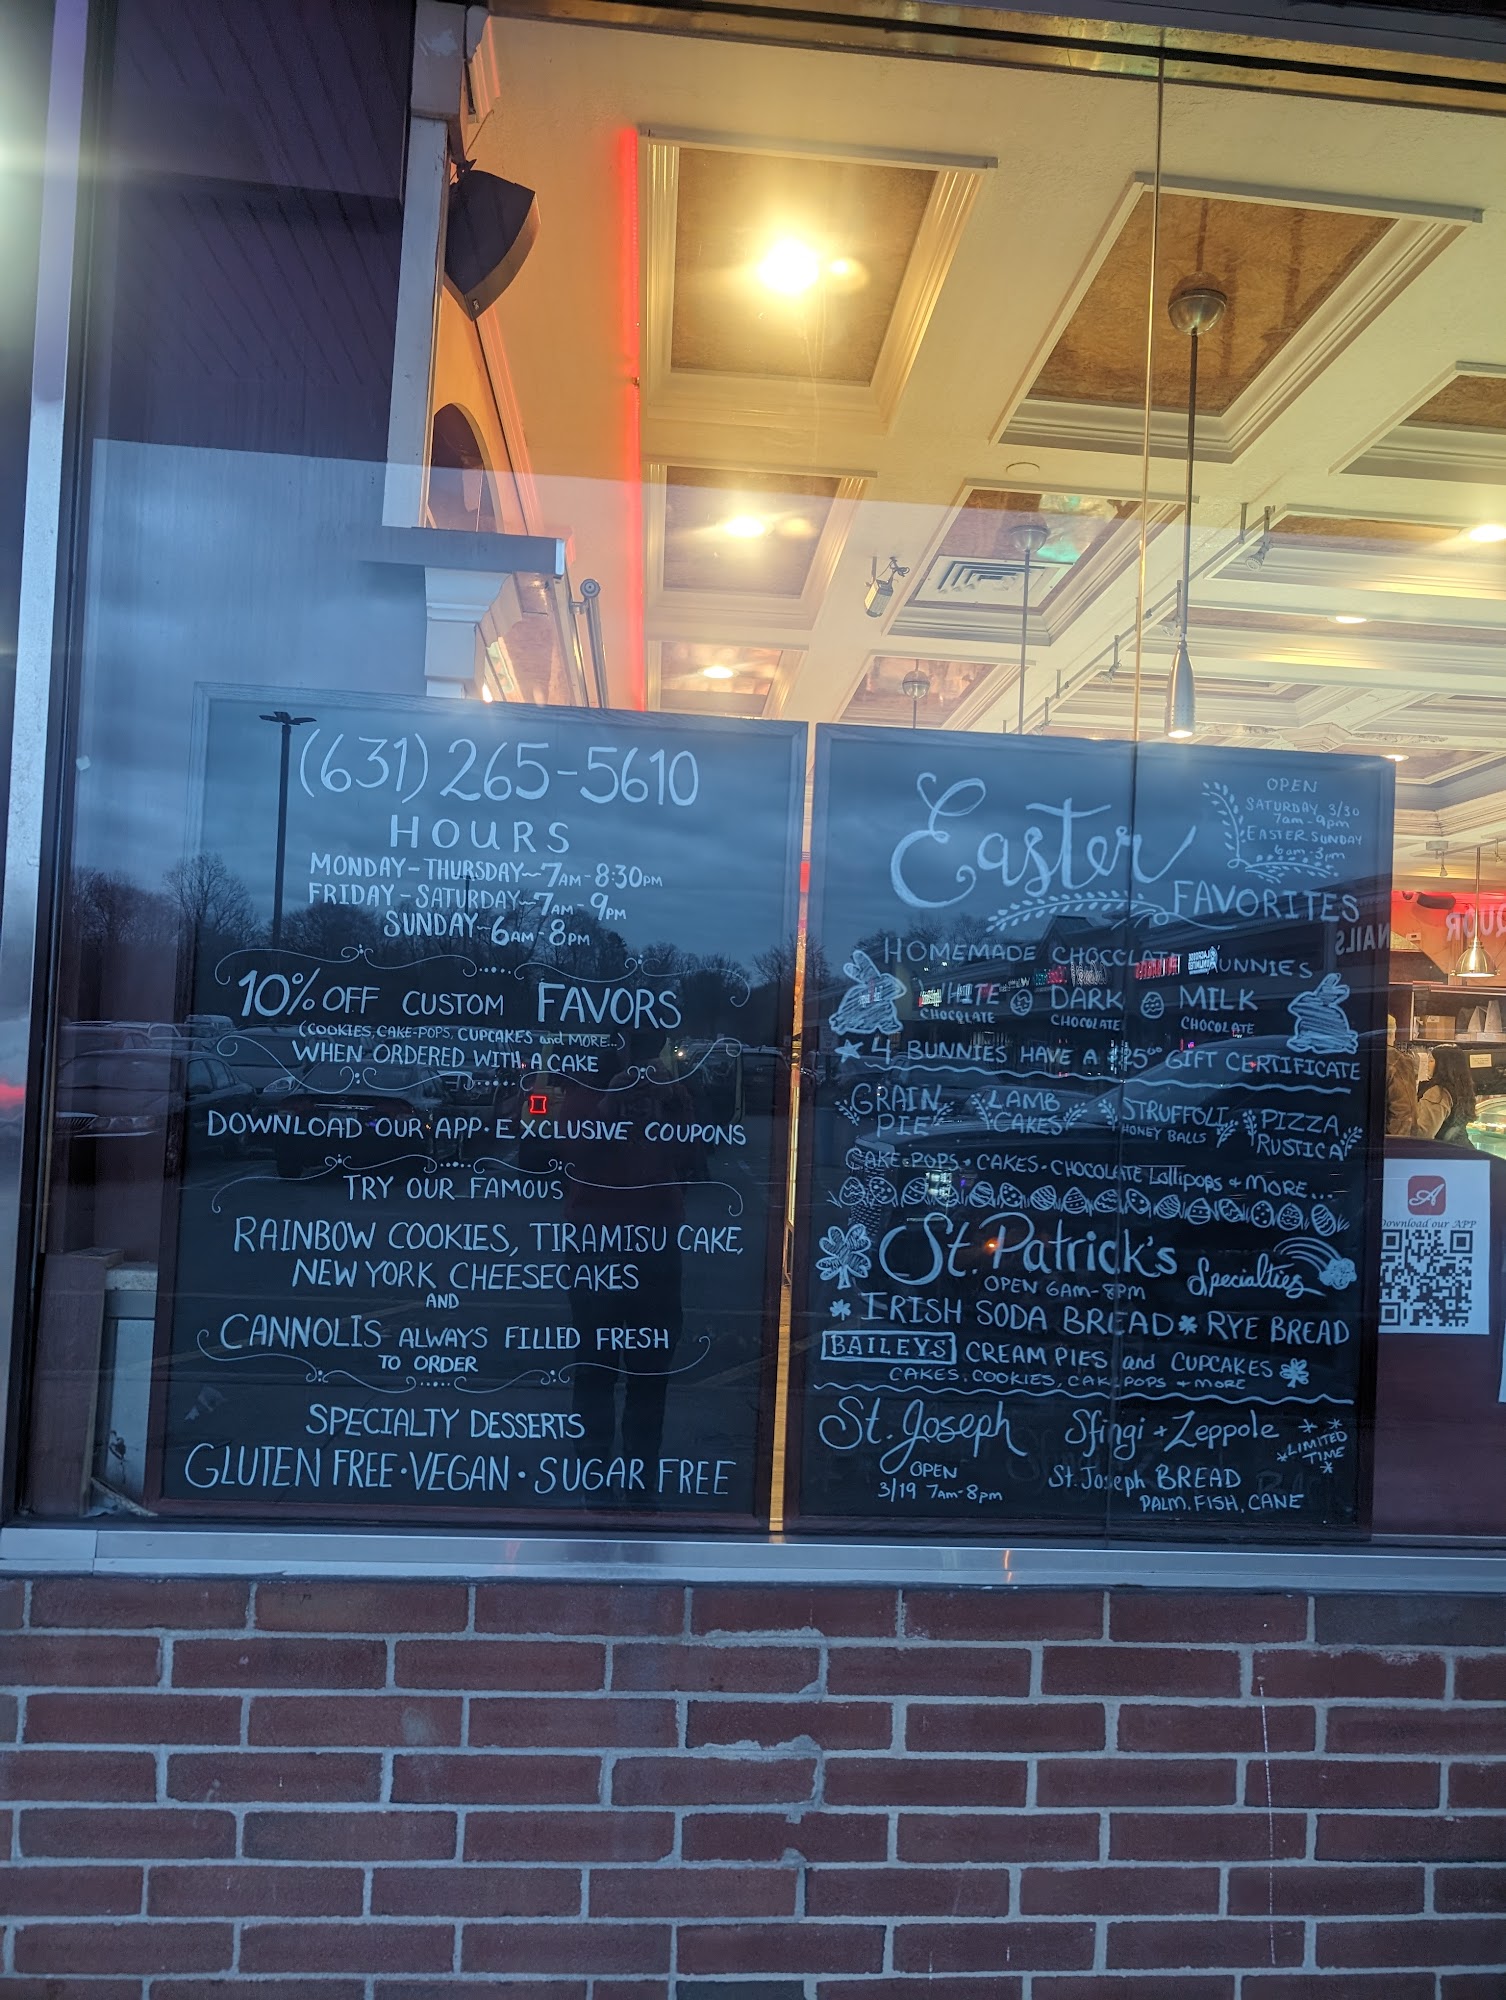 (631) 265-5610
HOURS
MONDAY-THURSDAY~7AM-8:30PM
FRIDAY-SATURDAY~7AM-9PM
SUNDAY~6AM-8PM
10% OFF CUSTOM FAVORS
(COOKIES, CAKE-POPS, CUPCAKES and MORE...)
WHEN ORDERED WITH A CAKE
DOWNLOAD OUR APP·EXCLUSIVE COUPONS
TRY OUR FAMOUS
RAINBOW COOKIES, TIRAMISU CAKE,
NEW YORK CHEESECAKES
AND
CANNOLIS ALWAYS FILLED FRESH
TO ORDER
SPECIALTY DESSERTS
GLUTEN FREE·VEGAN·SUGAR FREE
Easter
FAVORITES
OPEN
SATURDAY 3/30
7am-9pm
EASTER SUNDAY
6am-3pm
HOMEMADE CHOCOLATE BUNNIES
WHITE CHOCOLATE
DARK CHOCOLATE
MILK CHOCOLATE
4 BUNNIES HAVE A $25⁰⁰ GIFT CERTIFICATE
GRAIN PIE
LAMB CAKES
STRUFFOLI HONEY BALLS
PIZZA RUSTICA
CAKE-POPS·CAKES·CHOCOLATE Lollipops + MORE...
St. Patrick's Specialties
OPEN 6AM-8PM
IRISH SODA BREAD * RYE BREAD
BAILEYS CREAM PIES and CUPCAKES
CAKES, COOKIES, CAKE POPS + MORE
St. Joseph
OPEN
3/19 7am-8pm
Sfingi + Zeppole
LIMITED TIME
St. Joseph BREAD
PALM, FISH, CANE
A
Download our APP
NAILS